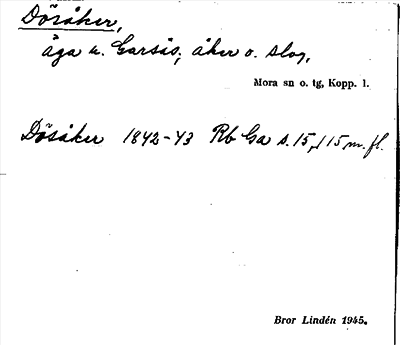 Dösåker,
äga u. Garsås, åker o. slog.
Mora sn o. tg, Kopp. l.
Dösåker 1842-43 Rb Ga s. 15, 115 m. fl.
Bror Lindén 1945.